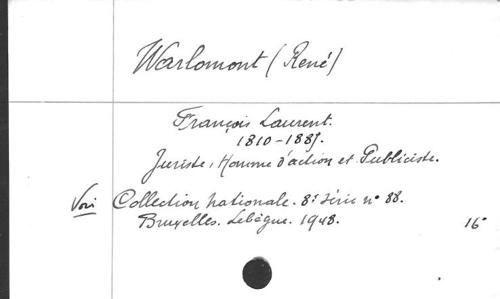 Warlomont (René)
François Laurent.
1810-1887.
Juriste, Homme d'action et Publiciste.
Voir Collection nationale. 8e série n° 88.
Bruxelles. Lebègue. 1948. 16°